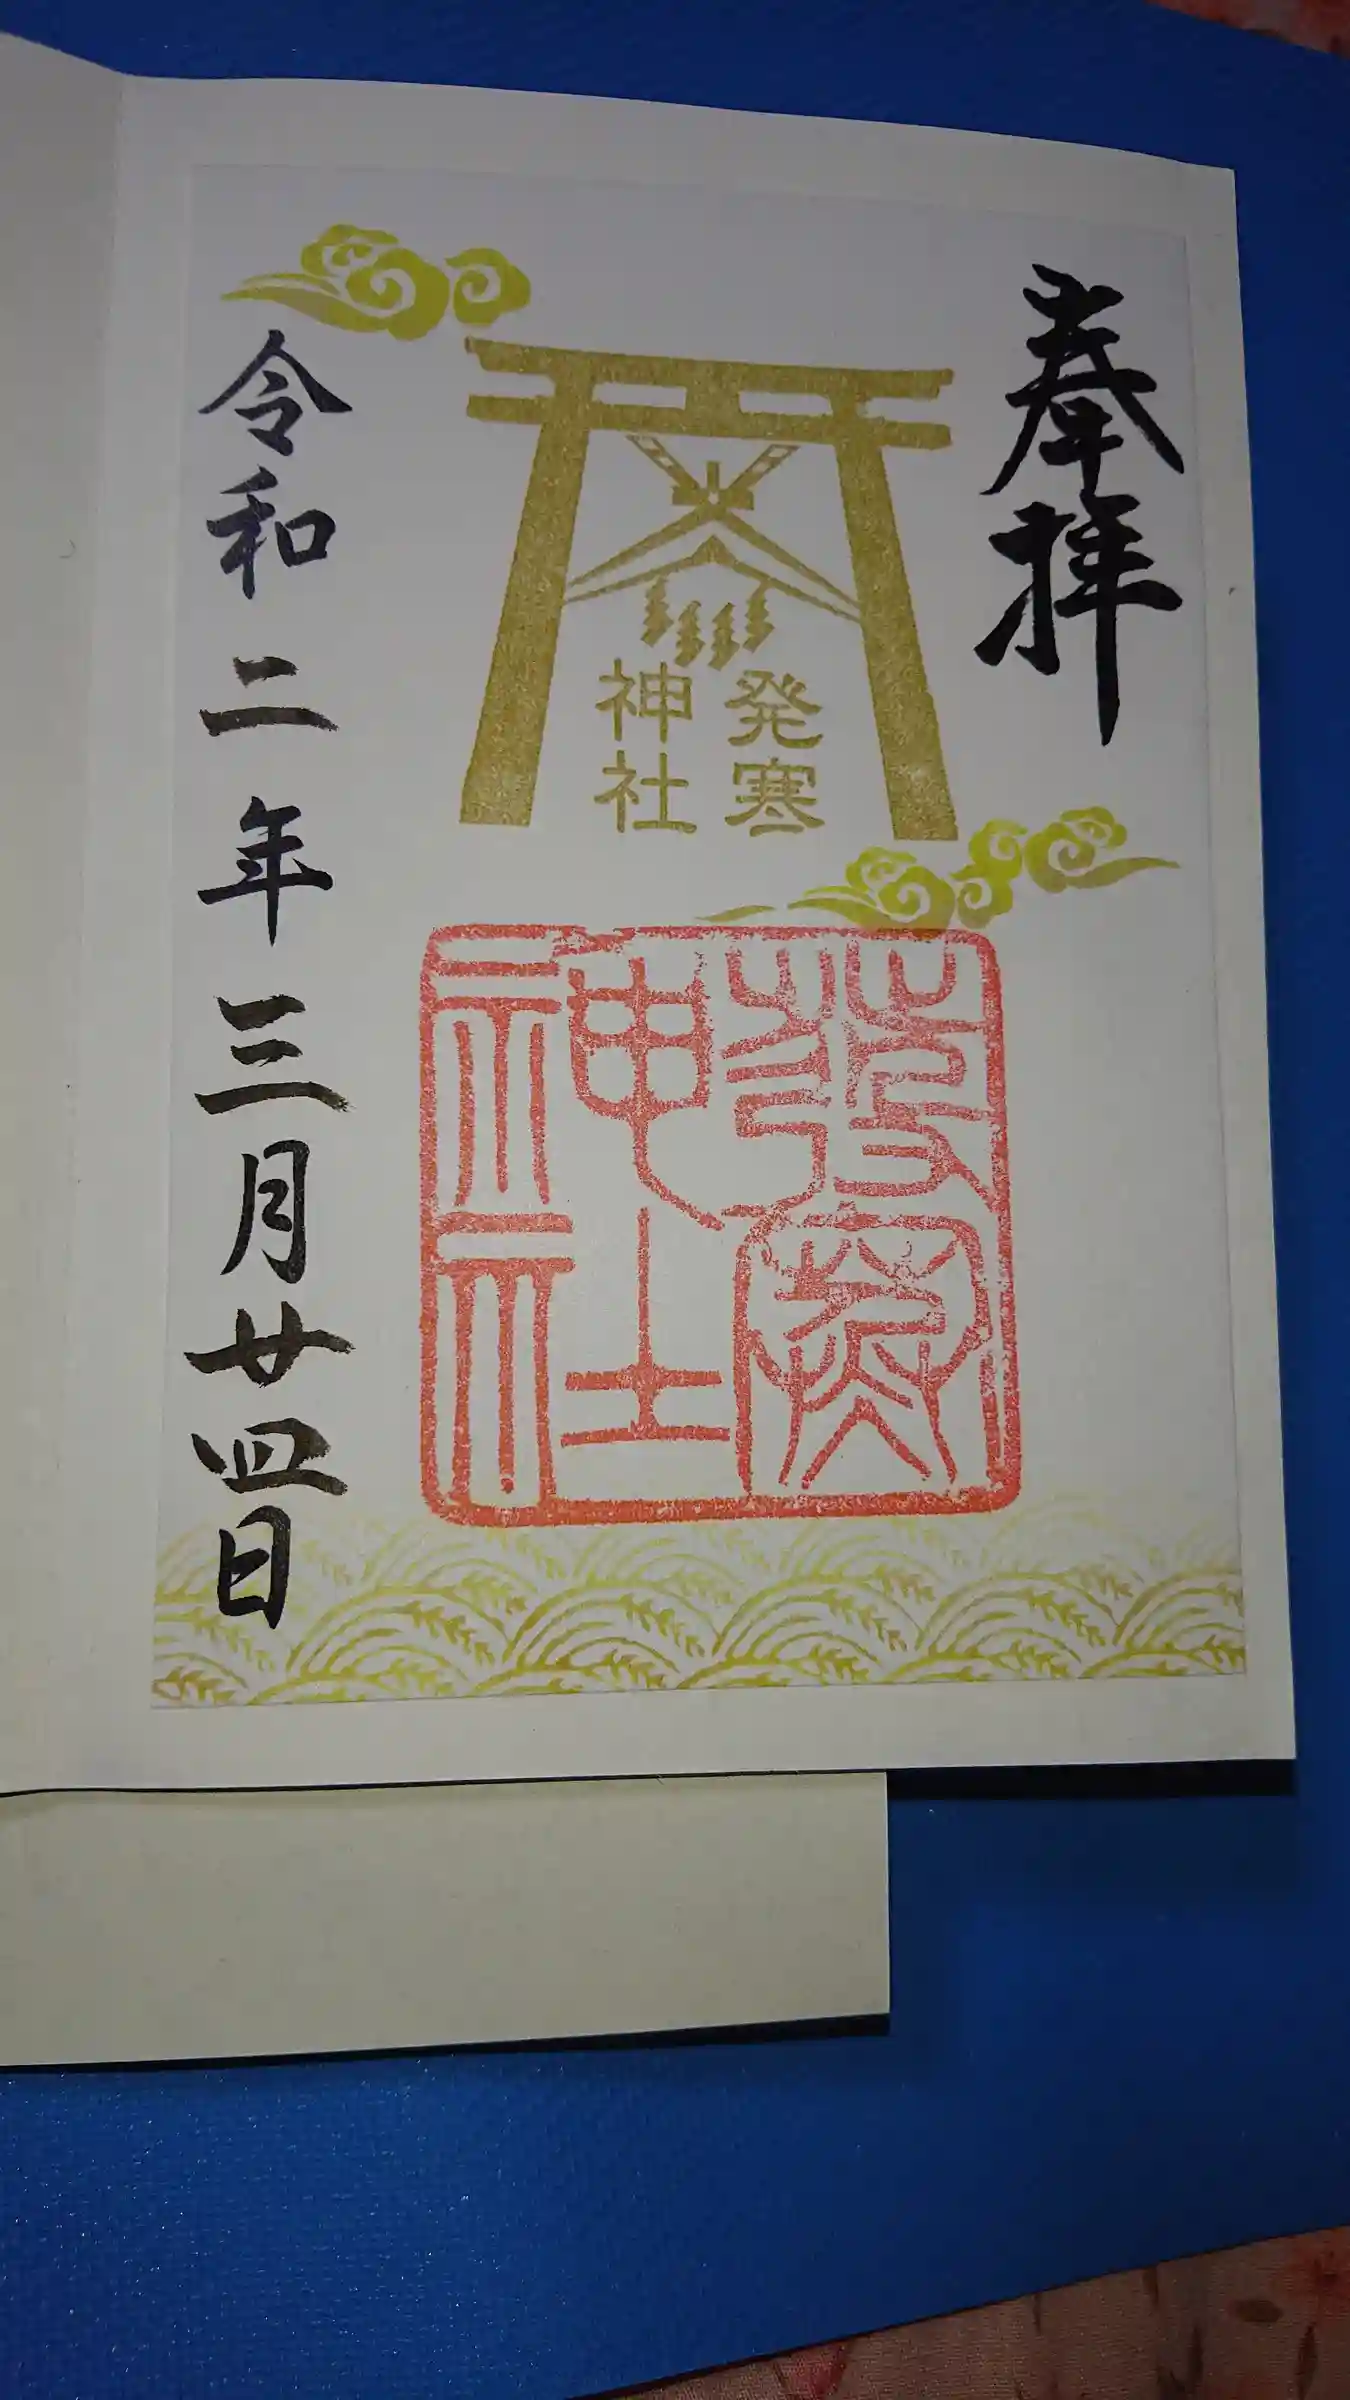 奉拝
発寒
神社
發寒
神社
令和二年三月廿四日